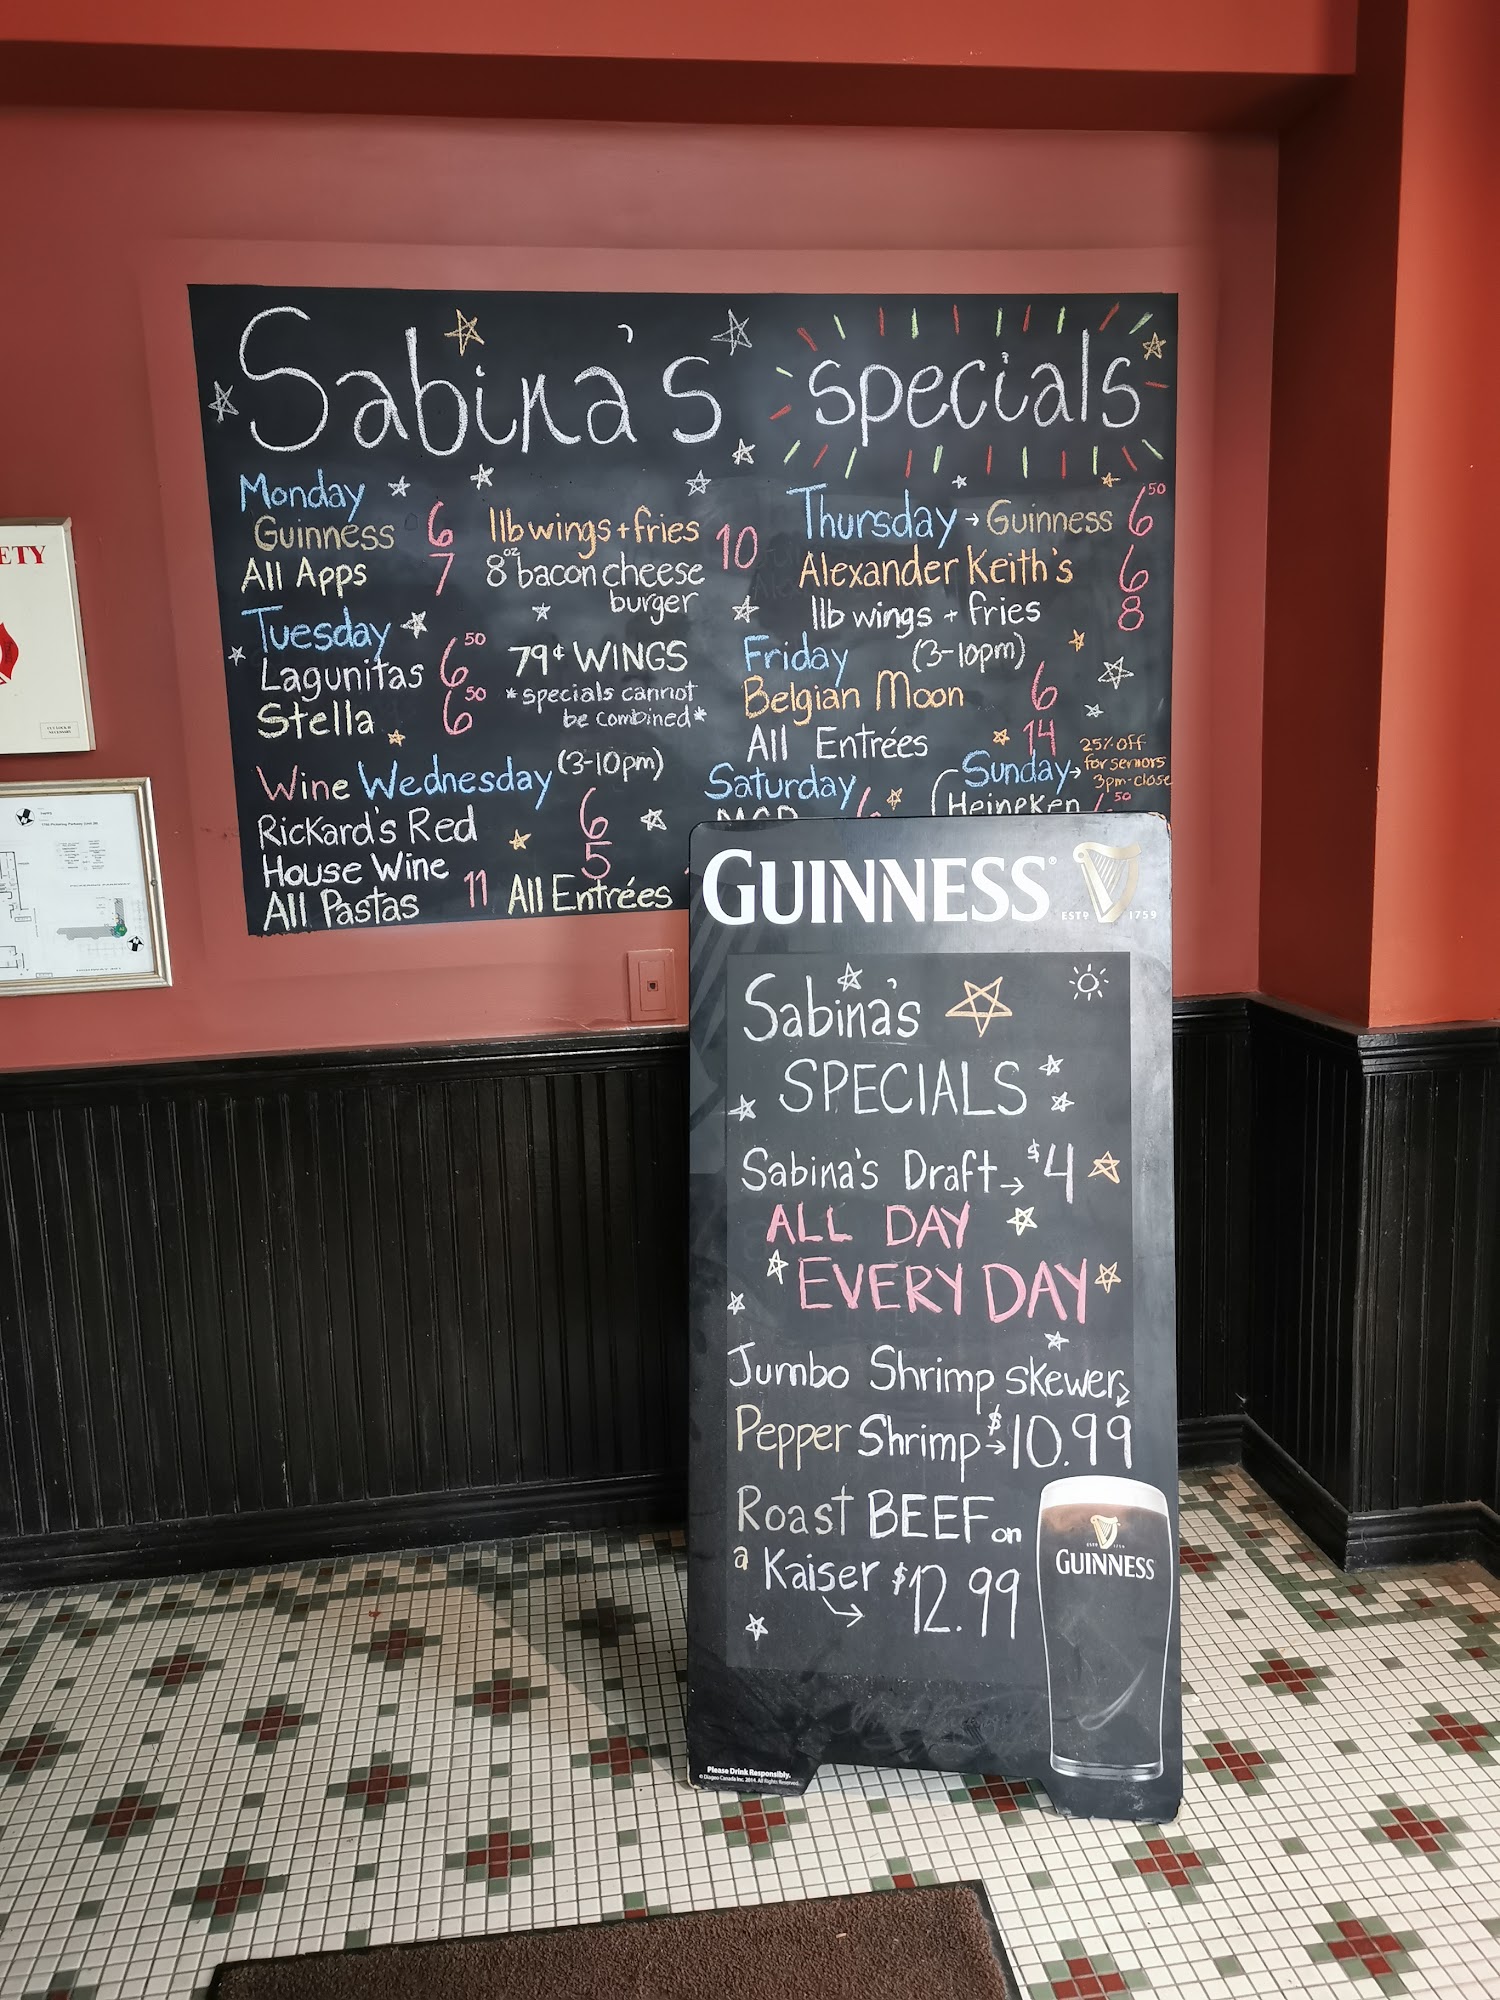 Sabina's specials
Monday
Guinness 6
All Apps 7
1lb wings + fries
8oz bacon cheese
burger
10
Tuesday
Lagunitas 6 50
Stella 6 50
79¢ WINGS
*specials cannot
be combined*
Wine Wednesday (3-10pm)
Rickard's Red 6
House Wine 5
All Pastas 11
All Entrées
Thursday → Guinness 6 50
Alexander Keith's 6
1lb wings + fries 8
Friday (3-10pm)
Belgian Moon 6
All Entrées 14
Saturday
Sunday → 25% off
for seniors
3pm-close
Heineken 50
ETY
GUINNESS
ESTD 1759
Sabina's
SPECIALS
Sabina's Draft → $4
ALL DAY
EVERY DAY
Jumbo Shrimp skewers
Pepper Shrimp → $10.99
Roast BEEF on
a Kaiser $12.99
GUINNESS
Please Drink Responsibly.
© Diageo Canada Inc. 2014. All Rights Reserved.